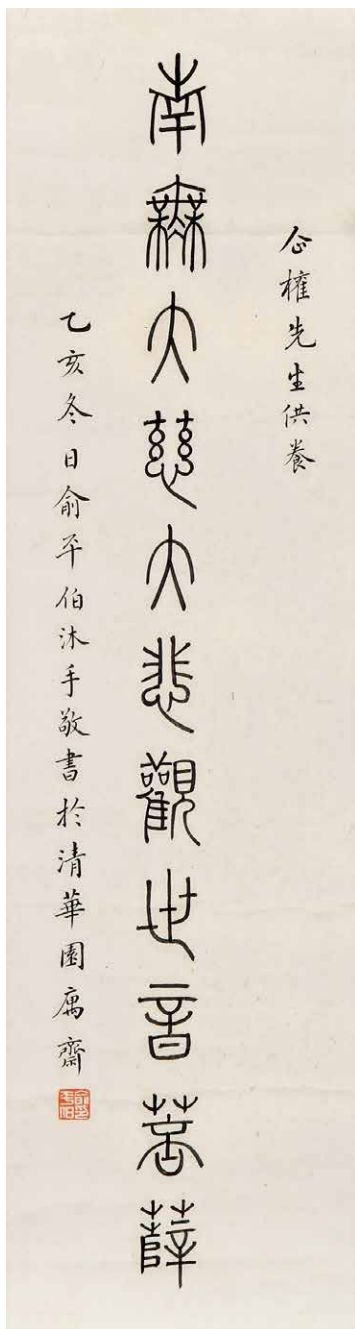 企榷先生供養
南無大慈大悲觀世音菩薩
乙亥冬日俞平伯沐手敬書於清華園寓齋